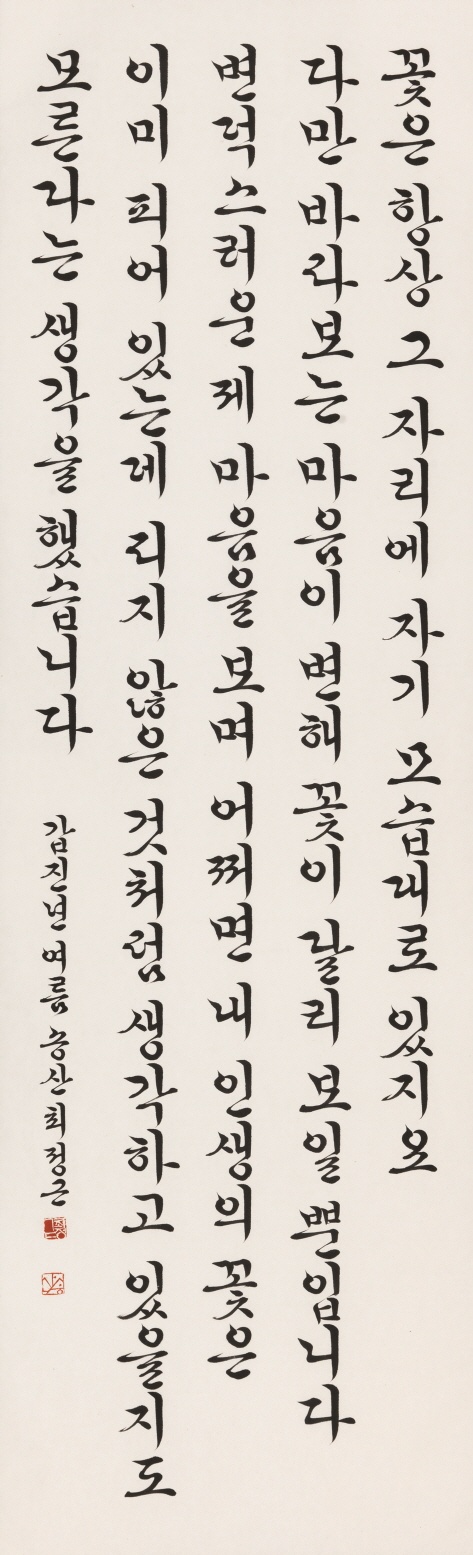 꽃은 항상 그 자리에 자기 모습대로 있지요
다만 바라보는 마음이 변해 꽃이 달리 보일 뿐입니다
변덕스러운 제 마음을 보며 어쩌면 내 인생의 꽃은
이미 피어 있는데 피지 않은 것처럼 생각하고 있을지도
모른다는 생각을 했습니다
갑진년 여름 송산 최정근